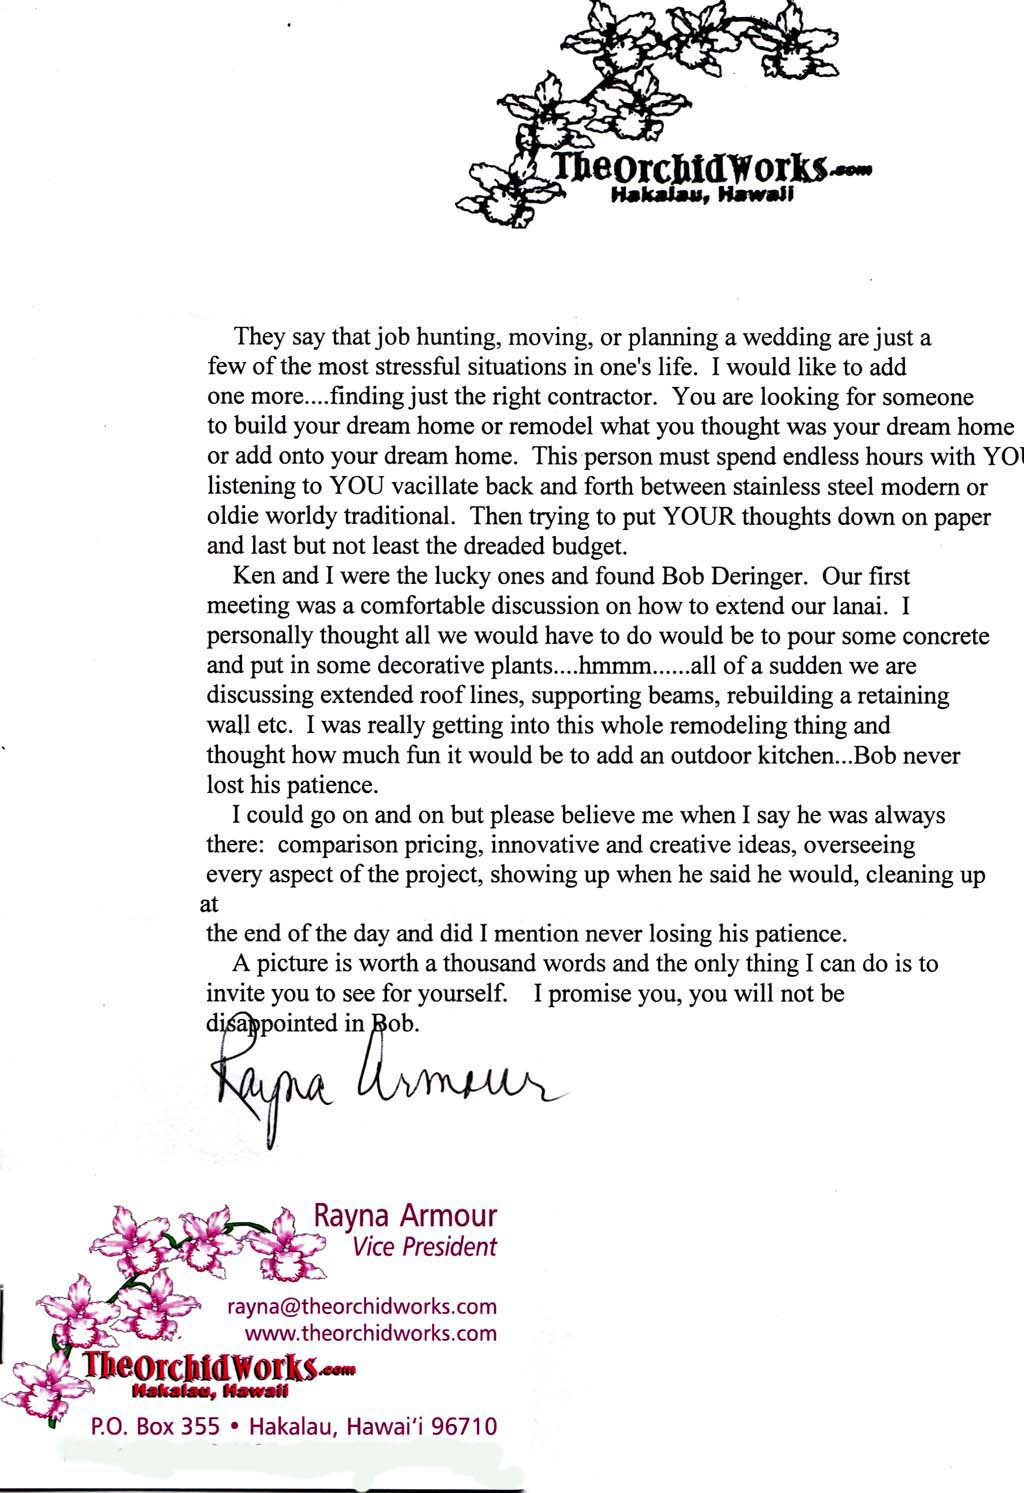 TheOrchidWorks.com
Hakalau, Hawaii
They say that job hunting, moving, or planning a wedding are just a
few of the most stressful situations in one's life. I would like to add
one more....finding just the right contractor. You are looking for someone
to build your dream home or remodel what you thought was your dream home
or add onto your dream home. This person must spend endless hours with YOU
listening to YOU vacillate back and forth between stainless steel modern or
oldie worldy traditional. Then trying to put YOUR thoughts down on paper
and last but not least the dreaded budget.
Ken and I were the lucky ones and found Bob Deringer. Our first
meeting was a comfortable discussion on how to extend our lanai. I
personally thought all we would have to do would be to pour some concrete
and put in some decorative plants....hmmm......all of a sudden we are
discussing extended roof lines, supporting beams, rebuilding a retaining
wall etc. I was really getting into this whole remodeling thing and
thought how much fun it would be to add an outdoor kitchen...Bob never
lost his patience.
I could go on and on but please believe me when I say he was always
there: comparison pricing, innovative and creative ideas, overseeing
every aspect of the project, showing up when he said he would, cleaning up
at
the end of the day and did I mention never losing his patience.
A picture is worth a thousand words and the only thing I can do is to
invite you to see for yourself. I promise you, you will not be
disappointed in Bob.
Rayna Armour
Rayna Armour
Vice President
rayna@theorchidworks.com
www.theorchidworks.com
TheOrchidWorks.com
Hakalau, Hawaii
P.O. Box 355 • Hakalau, Hawai'i 96710